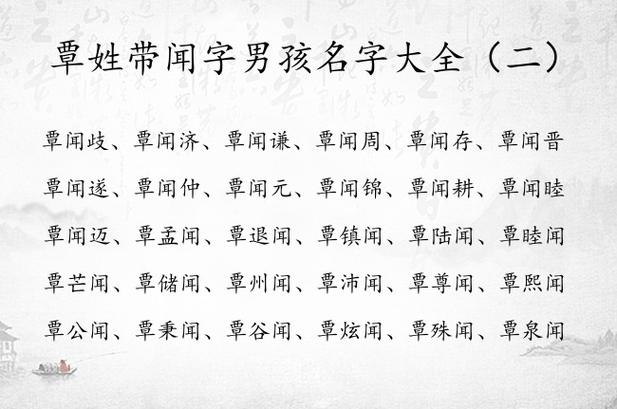 覃姓带闻字男孩名字大全（二）
覃闻歧、覃闻济、覃闻谦、覃闻周、覃闻存、覃闻晋
覃闻遂、覃闻仲、覃闻元、覃闻锦、覃闻耕、覃闻睦
覃闻迈、覃孟闻、覃退闻、覃镇闻、覃陆闻、覃睦闻
覃芒闻、覃储闻、覃州闻、覃沛闻、覃尊闻、覃熙闻
覃公闻、覃秉闻、覃谷闻、覃炫闻、覃殊闻、覃泉闻